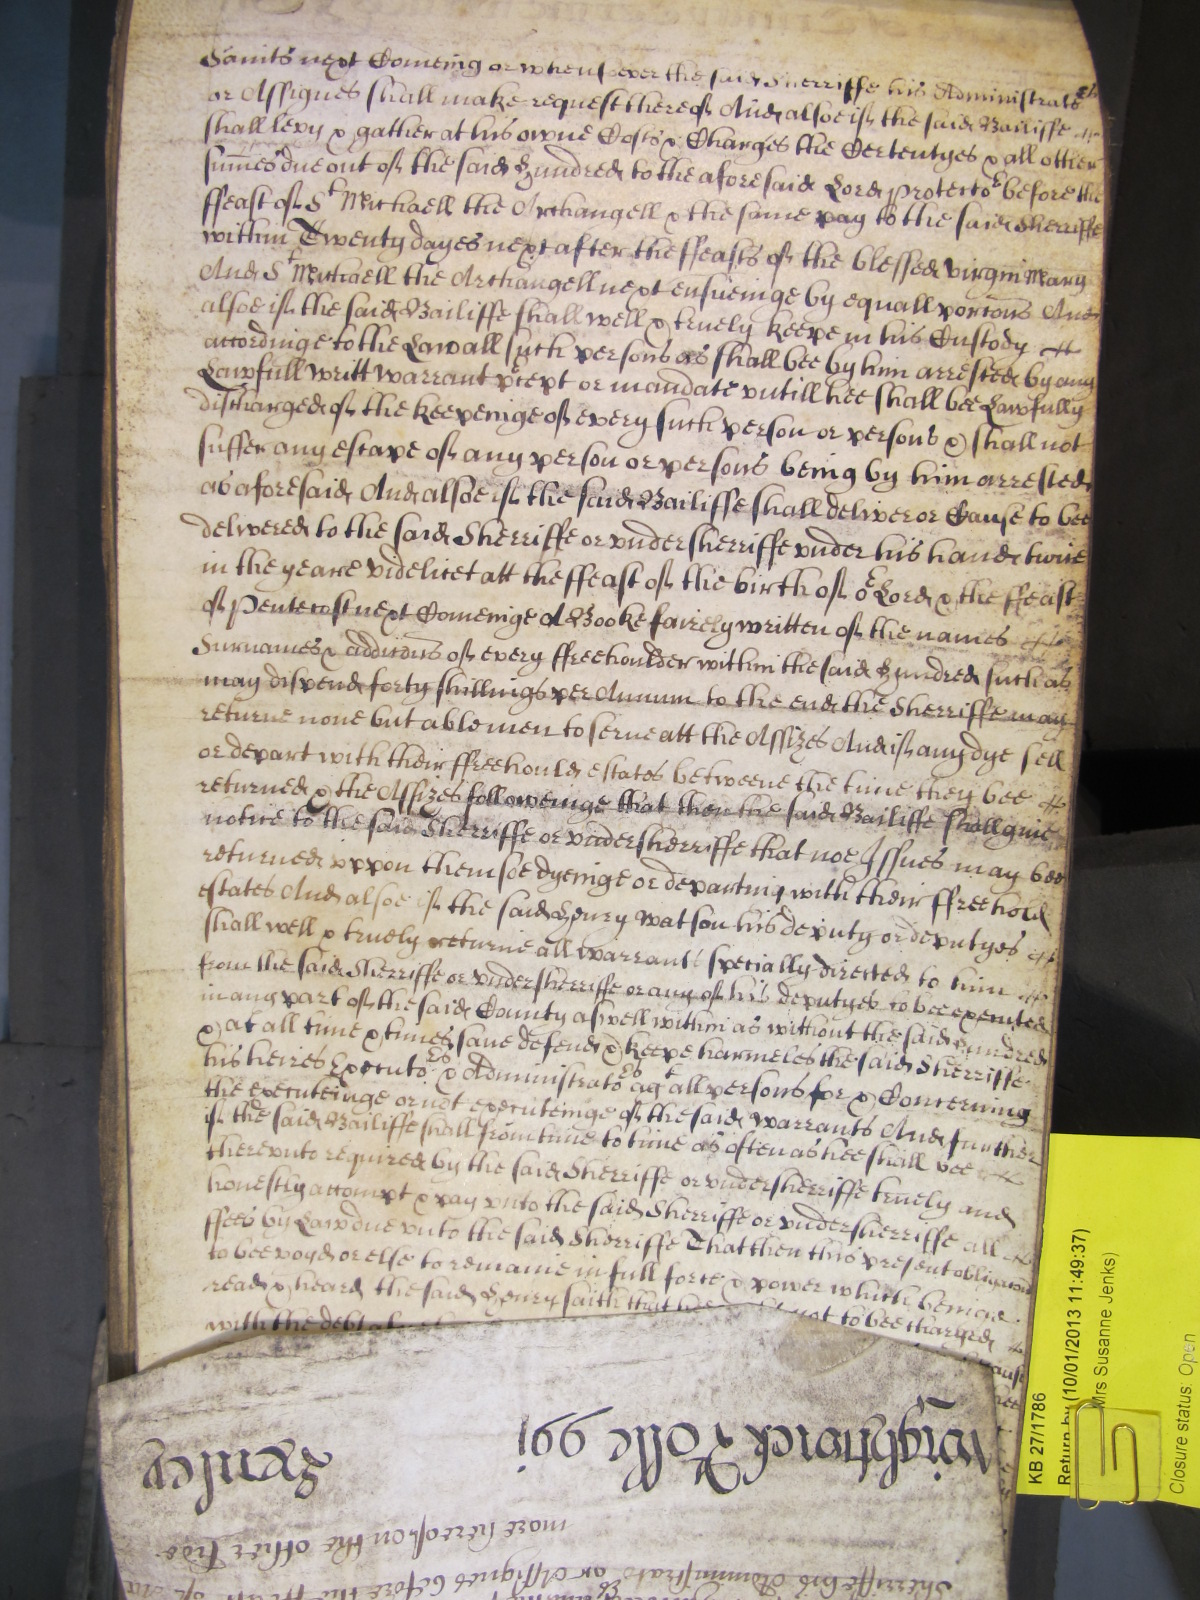 Saints next Comeing or whensoever the said Sherriffe his Administrators
or Assignes shall make request thereof And alsoe if the said Bailiffe
shall levy & gather at his owne Costs & Charges the Certentyes & all other
sumes due out of the said Hundred to the aforesaid Lord Protector before the
ffeast of St Michaell the Archangell & the same pay to the said Sherriffe
within Twenty dayes next after the ffeasts of the blessed virgin Mary
And St Michaell the Archangell next ensueinge by equall porcons And
alsoe if the said Bailiffe shall well & truely keepe in his Custody
accordinge to the Law all such persons as shall bee by him arrested by any
Lawfull writt warrant p'cept or mandate untill hee shall bee Lawfully
discharged of the keepeinge of every such person or persons & shall not
suffer any escape of any person or persons being by him arrested
as aforesaid And alsoe if the said Bailiffe shall deliver or Cause to bee
delivered to the said Sherriffe or undersherriffe under his hand twice
in the yeare videlicet att the ffeast of the birth of or Lord & the ffeast
of Pentecost next Comeinge A Booke fairely written of the names
Surnames & addicons of every ffreehoulder within the said Hundred such as
may dispend forty shillings per Annum to the end the Sherriffe may
returne none but able men to serve att the Assizes And if any dye sell
or depart with their ffreehould estates betweene the time they bee
returned & the Assizes followeinge that then the said Bailiffe shall give
notice to the said Sherriffe or undersherriffe that noe Issues may bee
returned uppon them soe dyeinge or departing with their ffreehold
estates And alsoe if the said Henry Watson his deputy or deputyes
shall well & truely returne all warrants specially directed to him
from the said Sherriffe or undersherriffe or any of his deputyes to bee executed
in any part of the said County aswell within as without the said Hundred
& at all time & times save defend & keepe harmeles the said Sherriffe
his heires Executors & Administrators agt all persons for & Concerning
the executeinge or not executeinge of the said warrants And further
if the said Bailiffe shall from time to time as often as hee shall bee
thereunto required by the said Sherriffe or undersherriffe truely and
honestly accompt & pay unto the said Sherriffe or undersherriffe all
ffees by Law due unto the said Sherriffe That then this present obligacon
to bee voyd or else to remaine in full force & power which being
read & heard the said Henry saith that hee not to bee charged
with the debt
Wightwick Rolle 991 Henley
more hereof on the other side
Sherriffe his Administrators or Assignes before the ffeast of
KB 27/1786
Return by (10/01/2013 11:49:37)
Mrs Susanne Jenks)
Closure status: Open